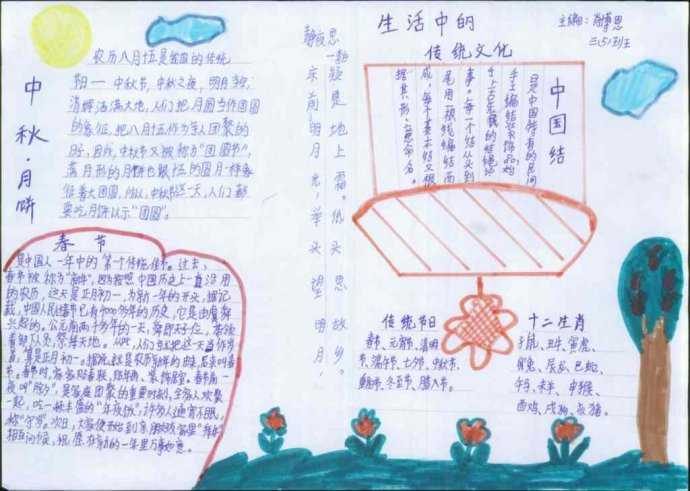 生活中的
传统文化
主编：肖博恩
三(5)班
中秋·月饼
农历八月十五是我国的传统
中秋节，中秋之夜，明月
清辉洒满大地，人们把月圆当作团圆
的象征，把八月十五作为亲人团聚的
日子，因此，中秋节又被称为“团圆节”，
象征着大团圆，所以，中秋节这一天，人们都
要吃月饼以示“团圆”。
静夜思
床前明月光，
疑是地上霜。
举头望明月，
低头思故乡。
中国结
是中国特有的民间
手工编结装饰品，始
于上古先民的结绳记
事。每一个结从头到
尾用一根线编结而
成，每个基本结又根
据其形、意命名。
春节
是中国人一年中的第一个传统佳节。过去，
春节被称为“新年”，因为按照中国历史上一直沿用
的农历，这天是正月初一，为新一年的开头。据记
载，中国人民过春节已有4000多年的历史，它是由虞舜
兴起的。公元前两千多年的一天，舜即天子位，带领
着部下人员，祭拜天地。从此，人们就把这一天当作岁
首，算是正月初一。据说，这就是农历新年的由来，后来叫春
一起，吃一顿丰盛的“年夜饭”，许多人通宵不眠，
相互问候，祝愿在新的一年里万事如意。
传统节日
春节、元宵节、清明
节、端午节、七夕节、中秋节、
重阳节、冬至节、腊八节。
十二生肖
子鼠、丑牛、寅虎、
卯兔、辰龙、巳蛇、
午马、未羊、申猴、
酉鸡、戌狗、亥猪。